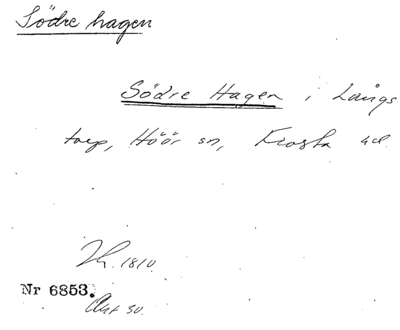 Södre hagen
Södre Hagen i Långs
torp, Höör sn, Frosta hd.
1810.
Nr 6853.
Akt 50.